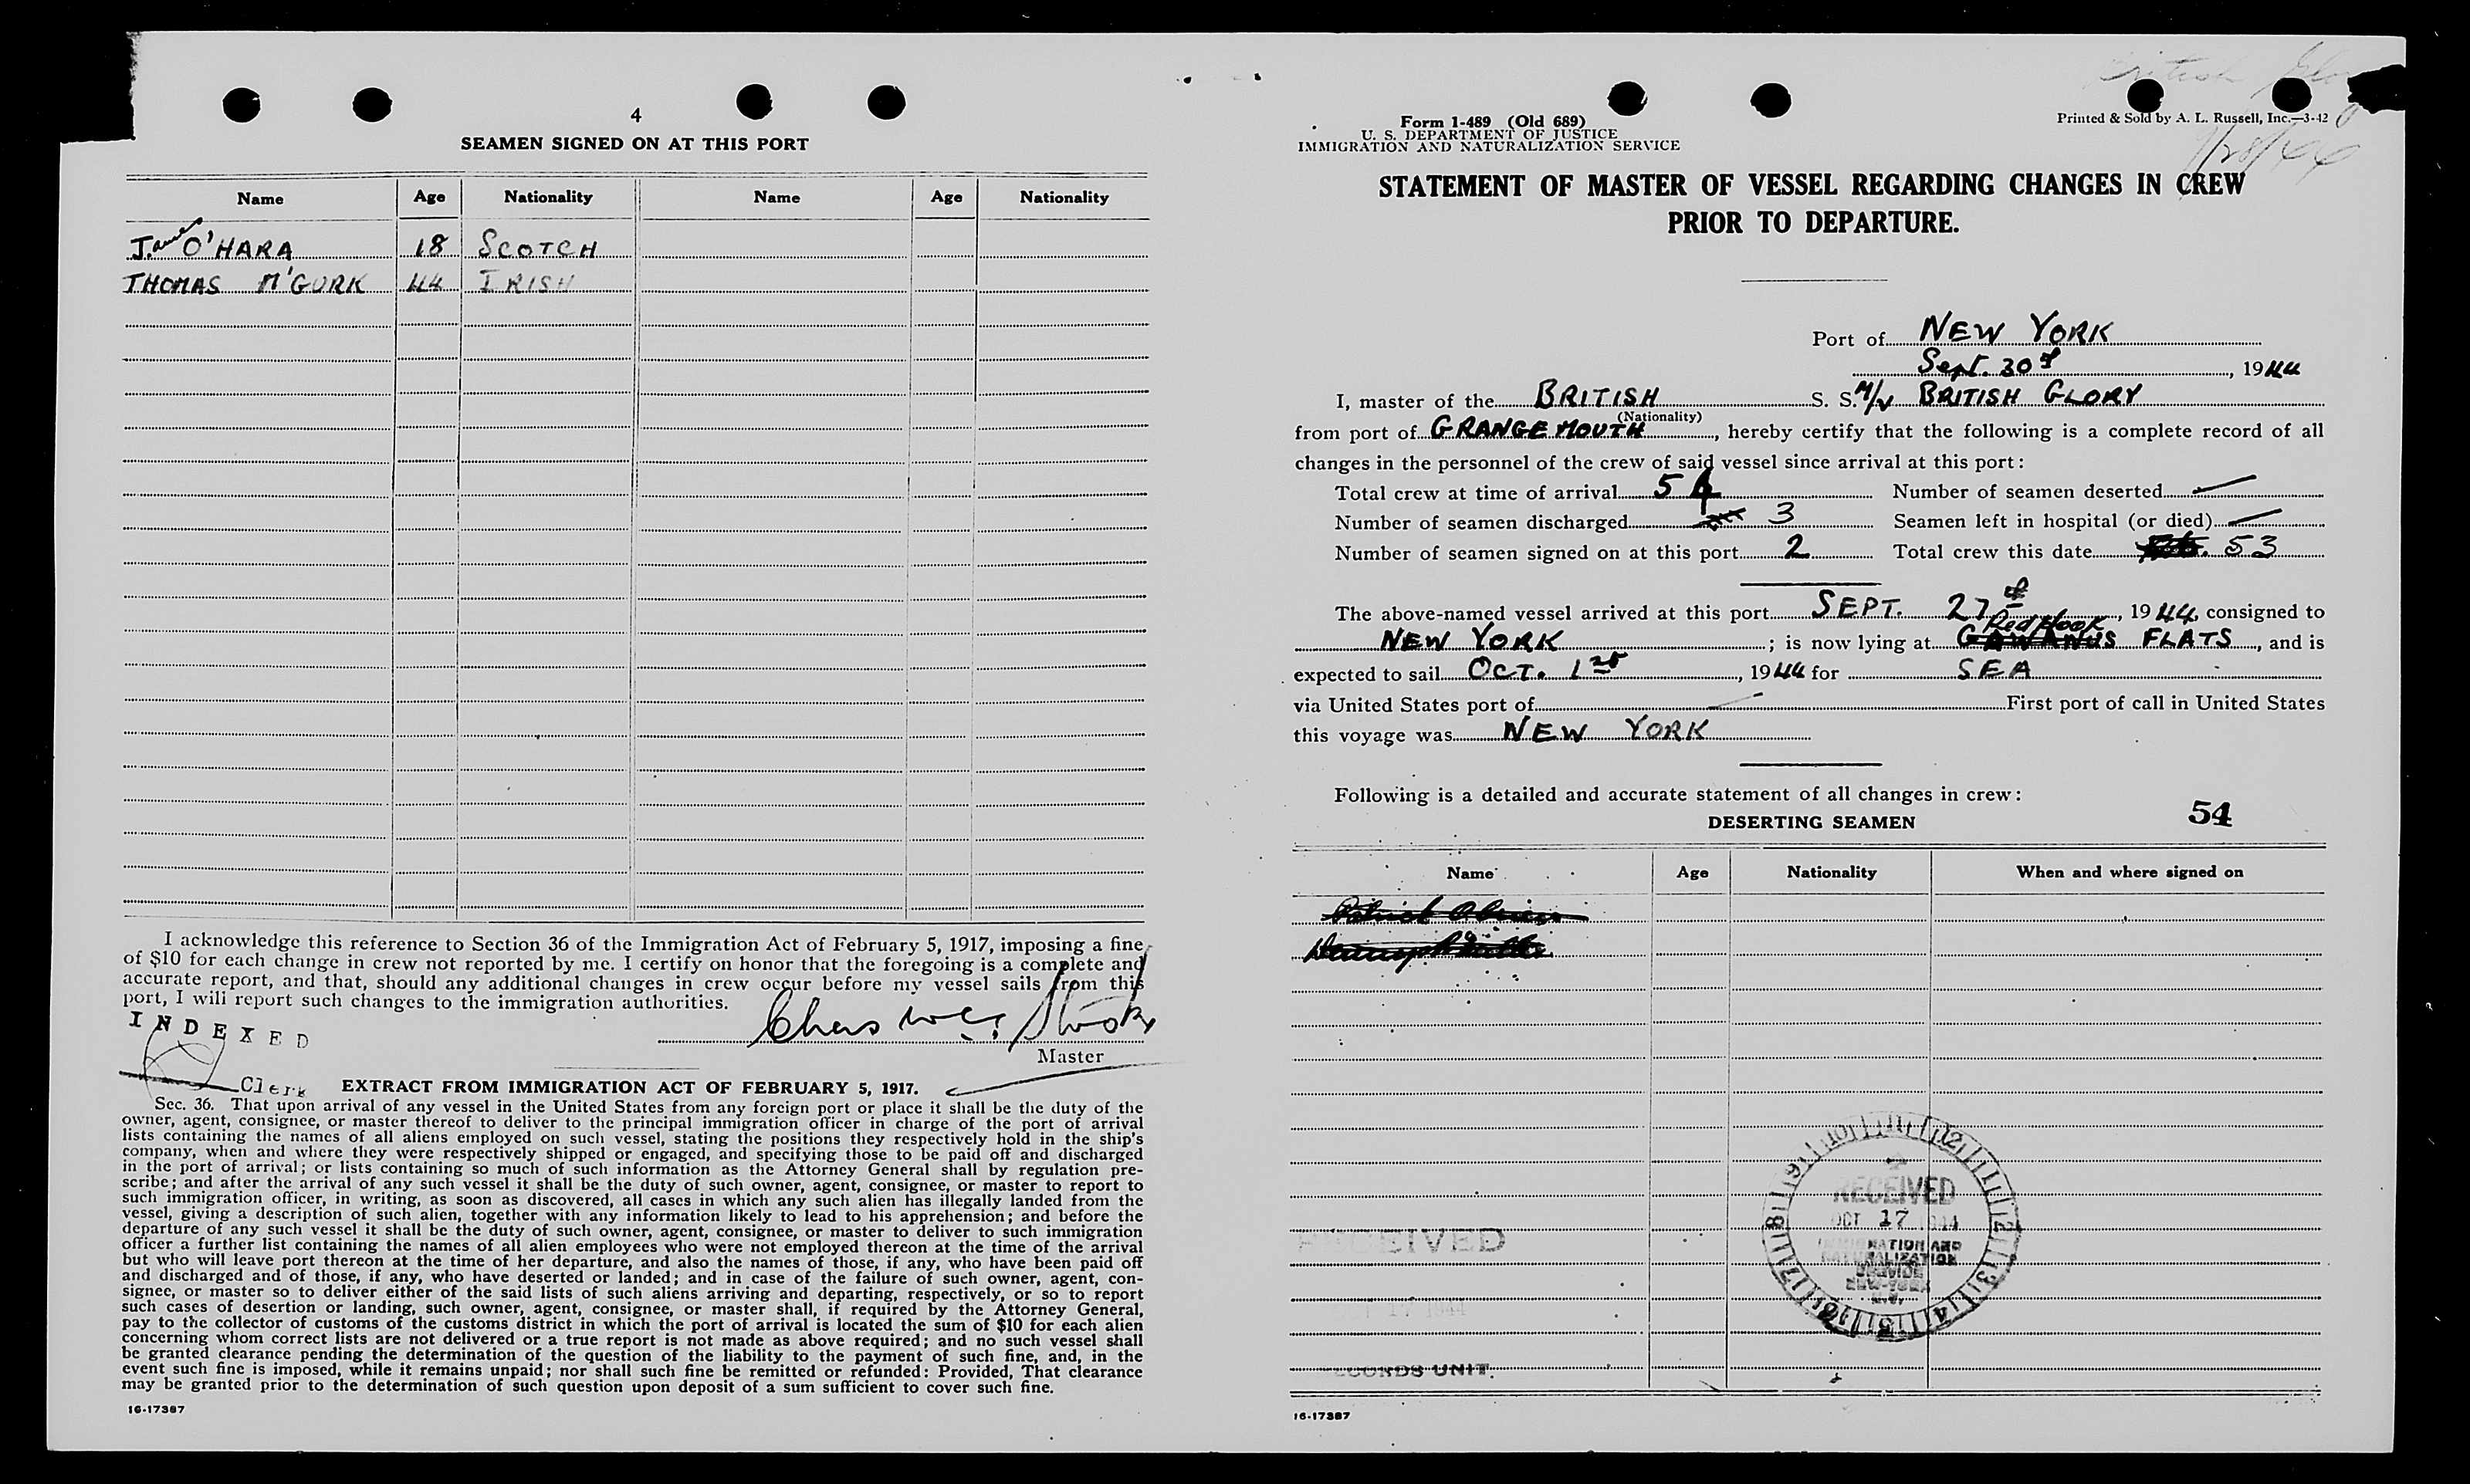 4
SEAMEN SIGNED ON AT THIS PORT
Name Age Nationality Name Age Nationality
James O'HARA 18 SCOTCH
THOMAS M'GURK 44 IRISH
I acknowledge this reference to Section 36 of the Immigration Act of February 5, 1917, imposing a fine
of $10 for each change in crew not reported by me. I certify on honor that the foregoing is a complete and
accurate report, and that, should any additional changes in crew occur before my vessel sails from this
port, I will report such changes to the immigration authorities.
INDEXED
Chas
Master
Clerk
EXTRACT FROM IMMIGRATION ACT OF FEBRUARY 5, 1917.
Sec. 36. That upon arrival of any vessel in the United States from any foreign port or place it shall be the duty of the
owner, agent, consignee, or master thereof to deliver to the principal immigration officer in charge of the port of arrival
lists containing the names of all aliens employed on such vessel, stating the positions they respectively hold in the ship's
company, when and where they were respectively shipped or engaged, and specifying those to be paid off and discharged
in the port of arrival; or lists containing so much of such information as the Attorney General shall by regulation pre-
scribe; and after the arrival of any such vessel it shall be the duty of such owner, agent, consignee, or master to report to
such immigration officer, in writing, as soon as discovered, all cases in which any such alien has illegally landed from the
vessel, giving a description of such alien, together with any information likely to lead to his apprehension; and before the
departure of any such vessel it shall be the duty of such owner, agent, consignee, or master to deliver to such immigration
officer a further list containing the names of all alien employees who were not employed thereon at the time of the arrival
but who will leave port thereon at the time of her departure, and also the names of those, if any, who have been paid off
and discharged and of those, if any, who have deserted or landed; and in case of the failure of such owner, agent, con-
signee, or master so to deliver either of the said lists of such aliens arriving and departing, respectively, or so to report
such cases of desertion or landing, such owner, agent, consignee, or master shall, if required by the Attorney General,
pay to the collector of customs of the customs district in which the port of arrival is located the sum of $10 for each alien
concerning whom correct lists are not delivered or a true report is not made as above required; and no such vessel shall
be granted clearance pending the determination of the question of the liability to the payment of such fine, and, in the
event such fine is imposed, while it remains unpaid; nor shall such fine be remitted or refunded: Provided, That clearance
may be granted prior to the determination of such question upon deposit of a sum sufficient to cover such fine.
16-17387
British
Form 1-489 (Old 689)
U. S. DEPARTMENT OF JUSTICE
IMMIGRATION AND NATURALIZATION SERVICE
Printed & Sold by A. L. Russell, Inc.—3-42
STATEMENT OF MASTER OF VESSEL REGARDING CHANGES IN CREW
PRIOR TO DEPARTURE.
Port of NEW YORK
Sept. 30, 1944
I, master of the BRITISH S. S. M/V BRITISH GLORY
(Nationality)
from port of GRANGEMOUTH, hereby certify that the following is a complete record of all
changes in the personnel of the crew of said vessel since arrival at this port:
Total crew at time of arrival 54 Number of seamen deserted —
Number of seamen discharged 3 Seamen left in hospital (or died) —
Number of seamen signed on at this port 2 Total crew this date 53
The above-named vessel arrived at this port SEPT. 27, 1944, consigned to
NEW YORK; is now lying at Red Hook GOWANUS FLATS, and is
expected to sail OCT. 1st, 1944 for SEA
via United States port of — First port of call in United States
this voyage was NEW YORK
Following is a detailed and accurate statement of all changes in crew:
54
DESERTING SEAMEN
Name Age Nationality When and where signed on
RECEIVED
OCT 17 1944
IMMIGRATION AND
NATURALIZATION
SERVICE
RECEIVED
17 1944
RECORDS UNIT.
16-17387